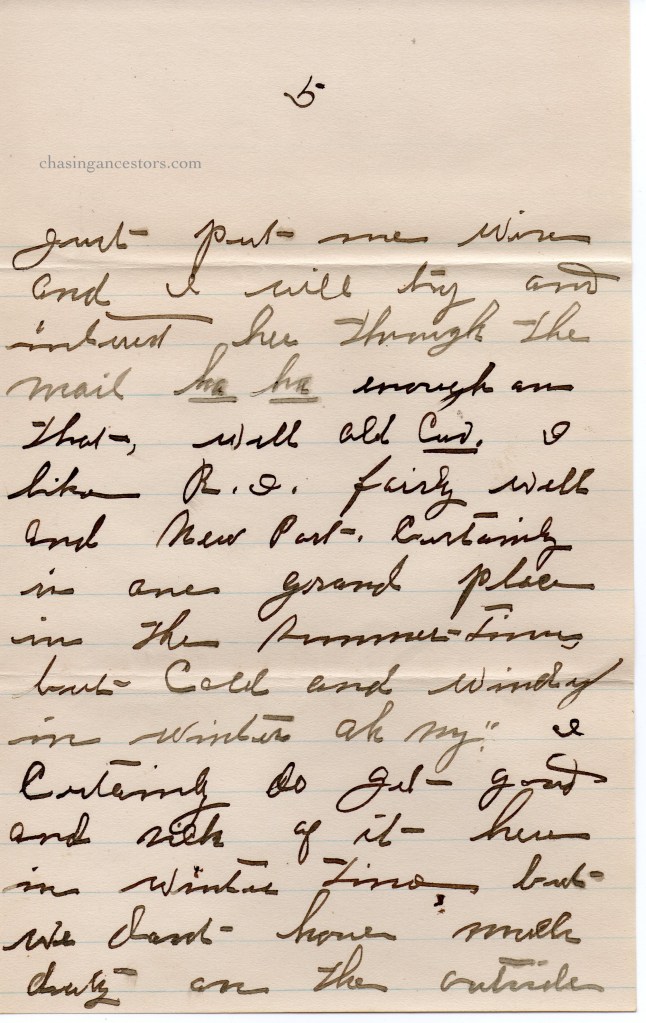 5
chasingancestors.com
Just put me wise
and I will try and
intrest her through the
mail ha ha enough on
that, well old Cuz. I
like R.I. fairly well
and New Port. Certainly
is one grand place
in the summer-time,
but Cold and windy
in winter oh my!! I
Certainly do get good
and sick of it here
in winter time, but
we dont have much
duty on the outside